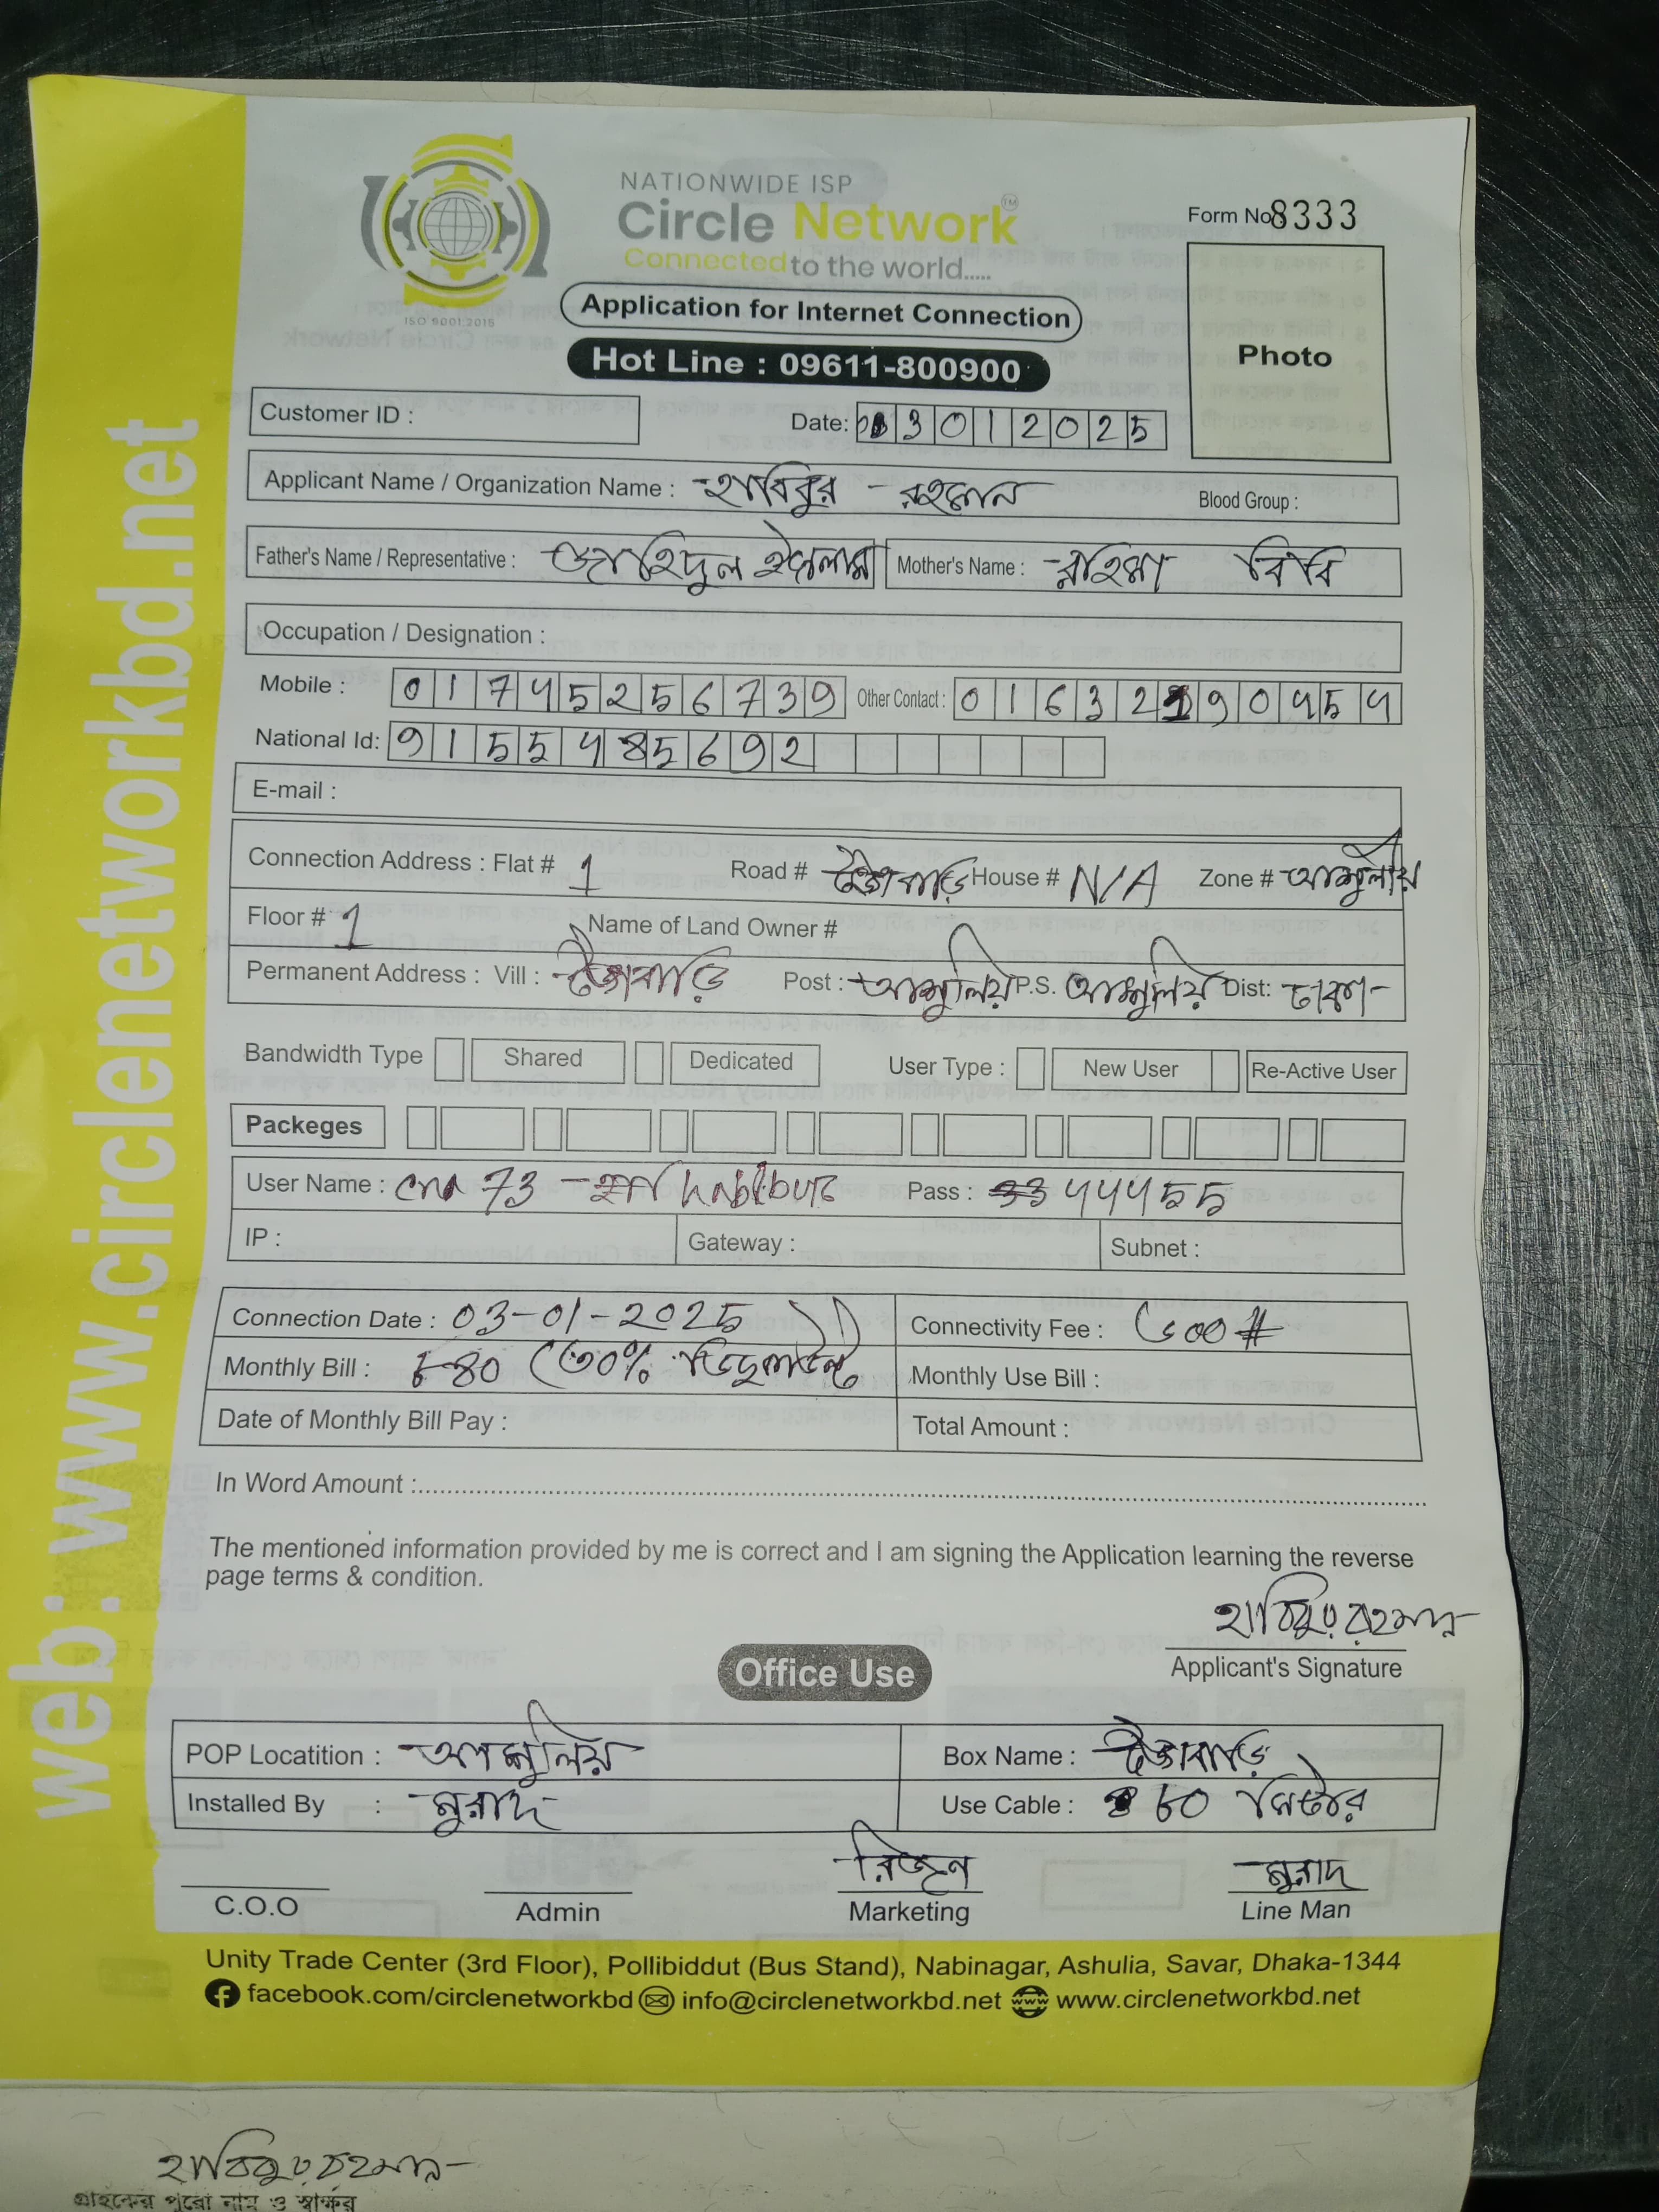 web: www.circlenetworkbd.net
NATIONWIDE ISP
Circle Network™
Connected to the world.....
ISO 9001:2015
Form No 8333
Application for Internet Connection
Hot Line : 09611-800900
Photo
Customer ID :
Date: 03012025
Applicant Name / Organization Name : হাবিবুর রহমান Blood Group :
Father's Name / Representative : জাহিদুল ইসলাম Mother's Name : রহিমা বিবি
Occupation / Designation :
Mobile : 01745256739 Other Contact : 01632190454
National Id: 9155485692
E-mail :
Connection Address : Flat # 1 Road # House # N/A Zone # আশুলীয়
Floor # 1 Name of Land Owner #
Permanent Address : Vill : Post : আশুলিয় P.S. আশুলিয় Dist: ঢাকা
Bandwidth Type Shared Dedicated User Type : New User Re-Active User
Packeges
User Name : 73 - habibur Pass : 444455
IP : Gateway : Subnet :
Connection Date : 03-01-2025 Connectivity Fee : 500#
Monthly Bill : Monthly Use Bill :
Date of Monthly Bill Pay : Total Amount :
In Word Amount :
The mentioned information provided by me is correct and I am signing the Application learning the reverse
page terms & condition.
হাবিবুর রহমান
Applicant's Signature
Office Use
POP Locatition : আশুলিয় Box Name :
Installed By : মুরাদ Use Cable : 60 মিটার
মুরাদ
C.O.O Admin Marketing Line Man
Unity Trade Center (3rd Floor), Pollibiddut (Bus Stand), Nabinagar, Ashulia, Savar, Dhaka-1344
facebook.com/circlenetworkbd info@circlenetworkbd.net www.circlenetworkbd.net
হাবিবুর রহমান
গ্রাহকের পুরো নাম ও স্বাক্ষর